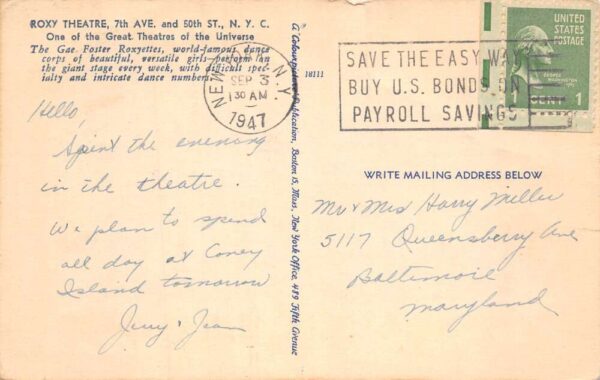 ROXY THEATRE, 7th AVE. and 50th ST., N. Y. C.
One of the Great Theatres of the Universe
The Gae Foster Roxyettes, world-famous dance
corps of beautiful, versatile girls perform on
the giant stage every week, with difficult spec-
ialty and intricate dance numbers.
Hello,
Spent the evening
in the theatre.
We plan to spend
all day at Coney
Island tomorrow
Jerry & Jean
18111
NEW YORK, N.Y.
SEP 3
1 30 AM
1947
Publication, Boston 15, Mass., New York Office, 489 Fifth Avenue
SAVE THE EASY WAY
BUY U.S. BONDS ON
PAYROLL SAVINGS
UNITED
STATES
POSTAGE
GEORGE
WASHINGTON
1
WRITE MAILING ADDRESS BELOW
Mr & Mrs Harry Miller
5117 Queensberry Ave
Baltimore
Maryland